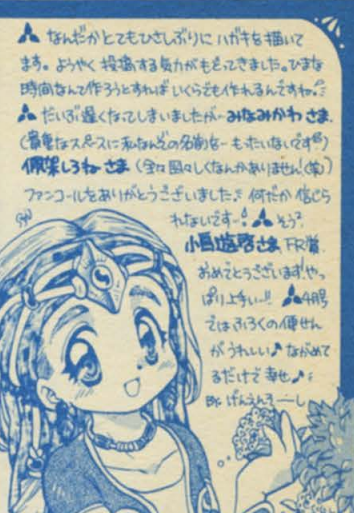 なんだかとてもひさしぶりにハガキを描いて
ます。ようやく投稿する気力がもどってきました。ひまな
時間なんて作ろうとすればいくらでも作れるんですね。
だいぶ遅くなってしまいましたが…みなみかわさま
(貴重なスペースに私なんぞの名前を…もったいないです)
しろねさま(全々図々しくなんかありません(笑)
ファンコールをありがとうございました。何だか信じら
れないです…! そう、
小 さま、FR賞、
おめでとうございます!やっ
ぱり上手い…!! 4月号
ではふろくの便せん
がうれしい♪ながめて
るだけで幸せ♪
By. げんえんすーし